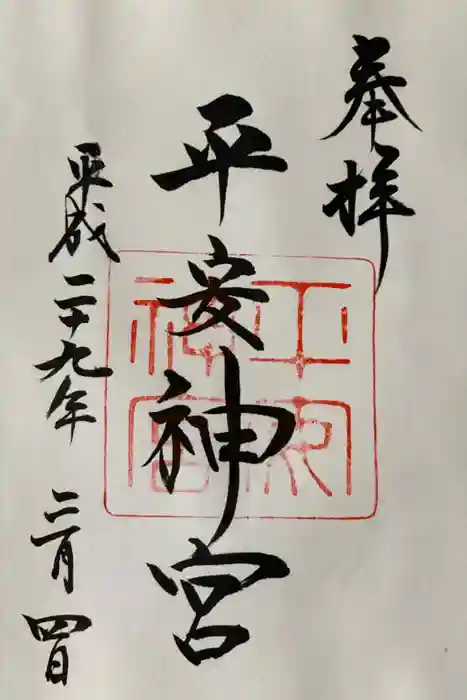 奉拝
平安神宮
平安神宮
平成二十九年 三月四日